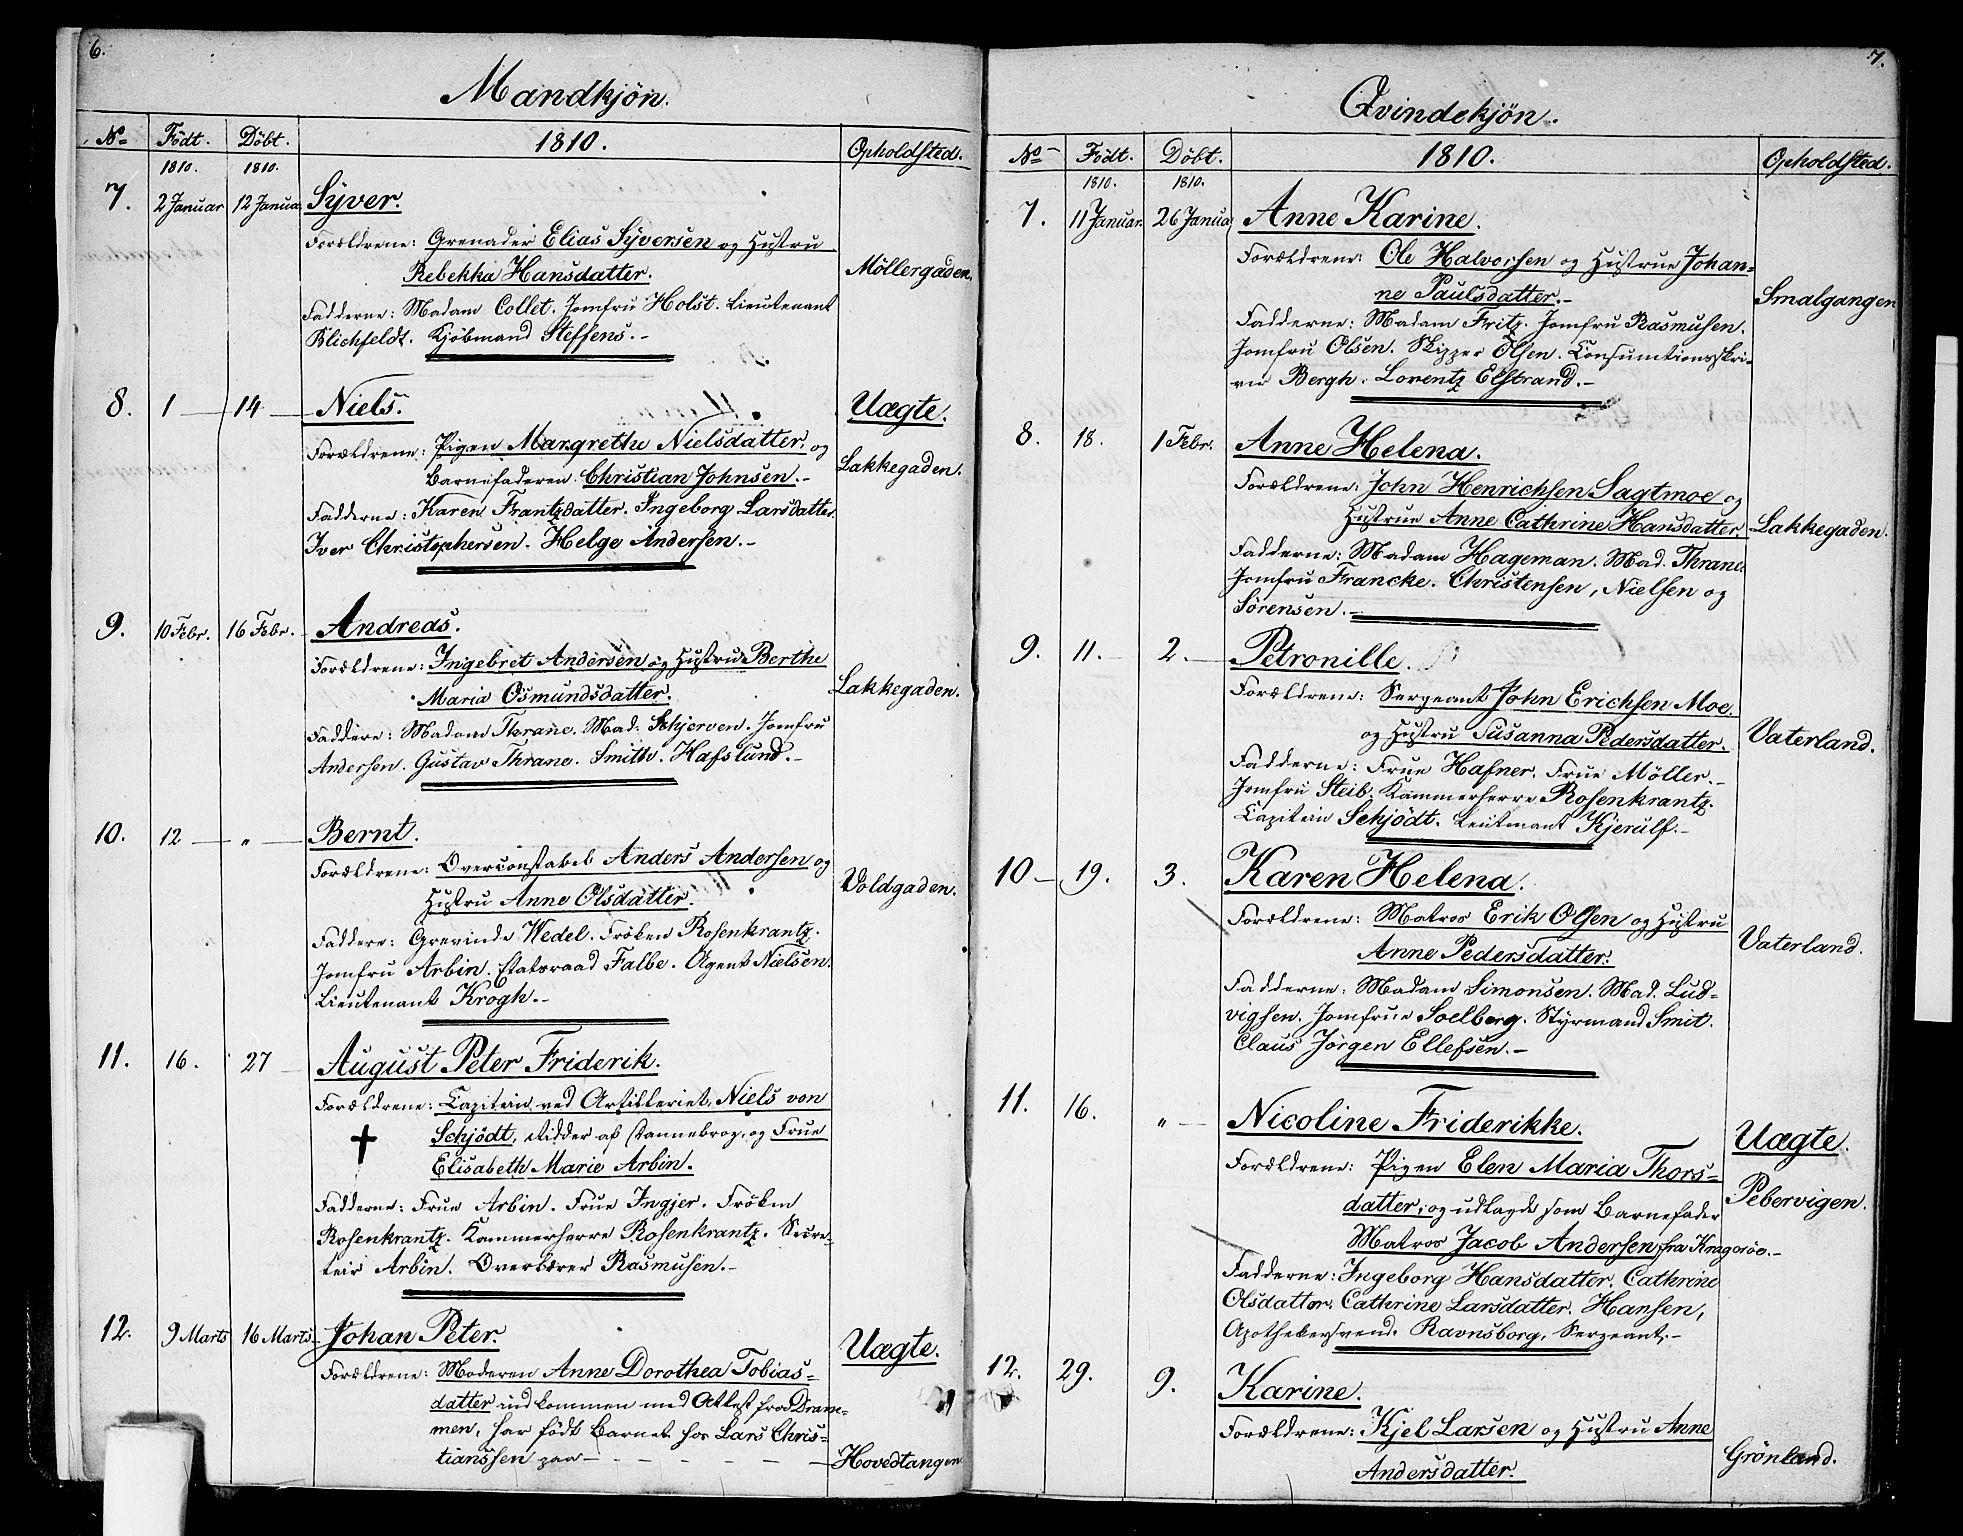 6.
Mandkjön.
No Födt. Döbt. 1810. Opholdsted.
1810. 1810.
7. 2 Januar 12 Janua. Syver.
Forældrene: Grenader Elias Syversen og Hustru
Rebekka Hansdatter. Möllergaden.
Fadderne: Madam Collet. Jomfru Holst. Lieutenant
Blichfeldt. Kjöbmand Steffens.-
8. 1 14 Niels. Uægte.
Forældrene: Pigen Margrethe Nielsdatter, og
Barnefaderen Christian Johnsen.- Lakkegaden.
Fadderne: Karen Frantzdatter. Ingeborg Larsdatter.
Iver Christophersen. Helge Andersen.-
9. 10 Febr. 16 Febr. Andreas.
Forældrene: Ingebret Andersen og Hustru Berthe
Maria Osmundsdatter. Lakkegaden.
Faddere: Madam Thrane. Mad: Schjerven. Jomfru
Andersen. Gustav Thrane. Smith. Hafslund.-
10. 12 " Bernt.
Forældrene: Overconstabel Anders Andersen og
Hustru Anne Olsdatter. Voldgaden.
Faddere: Grevinde Wedel. Fröken Rosenkrantz.
Jomfru Arbin. Etatsraad Falbe. Agent Nielsen.
Lieutenant Krogh.-
11. 16. 27 August Peter Friderik.
Forældrene: Capitain ved Artilleriet, Niels von
Schjödt, Ridder af Dannebrog, og Frue
Elisabeth Marie Arbin.
Fadderne: Frue Arbin. Frue Ingjer. Fröken
Rosenkrantz. Kammerherre Rosenkrantz. Secre-
tair Arbin. Overkærer Rasmusen.-
12. 9 Marts 16 Marts Johan Peter. Uægte.
Forældrene: Moderen Anne Dorothea Tobias-
datter indkommen med Attest fra Dram-
men, har födt Barnet hos Lars Chris-
tianssen paa - - - - - - Hovedtangen
7.
Qvindekjön.
No Födt. Döbt. 1810. Opholdsted.
1810. 1810.
7. 11 Januar. 26 Janua Anne Karine.
Forældrene: Ole Halvorsen og Hustrue Johan-
ne Paulsdatter.- Smalgangen
Fadderne: Madam Fritz. Jomfru Rasmusen.
Jomfru Olsen. Skipper Olsen. Consumtionsskri-
ver Bergh. Lorentz Elstrand.-
8. 18. 1 Febr. Anne Helena.
Forældrene: John Henrichsen Sagtmoe og
Hustrue Anne Cathrine Hansdatter. Lakkegaden.
Fadderne: Madam Hageman. Mad. Thrane.
Jomfru Francke. Christensen, Nielsen og
Sörensen.-
9. 11. 2. Petronille.
Forældrene: Sergeant John Erichsen Moe.
og Hustru Susanna Pedersdatter. Vaterland.
Fadderne: Frue Hafner. Frue Möller.-
Jomfru Steib. Kammerherre Rosenkrantz.
Capitain Schjödt. Leutnant Kjerulf.-
10 19. 3. Karen Helena.
Forældrene: Matros Erik Olsen og Hustru
Anne Pedersdatter. Vaterland.
Fadderne: Madam Simonsen. Mad. Lud-
vigsen. Jomfrue Soelberg. Styrmand Smit.
Claus Jörgen Ellefsen.-
11. 16. " Nicoline Friderikke. Uægte.
Forældrene: Pigen Elen Maria Thors-
datter, og udlagde som Barnefader Pebervigen.
Matros Jacob Andersen fra Krageröe.-
Fadderne: Ingeborg Hansdatter. Cathrine
Olsdatter. Cathrine Larsdatter. Hansen,
Apothekersvend. Ravnsborg, Sergeant.-
12. 29. 9. Karine.
Forældrene: Kjel Larsen og Hustru Anne
Andersdatter. Grönland.